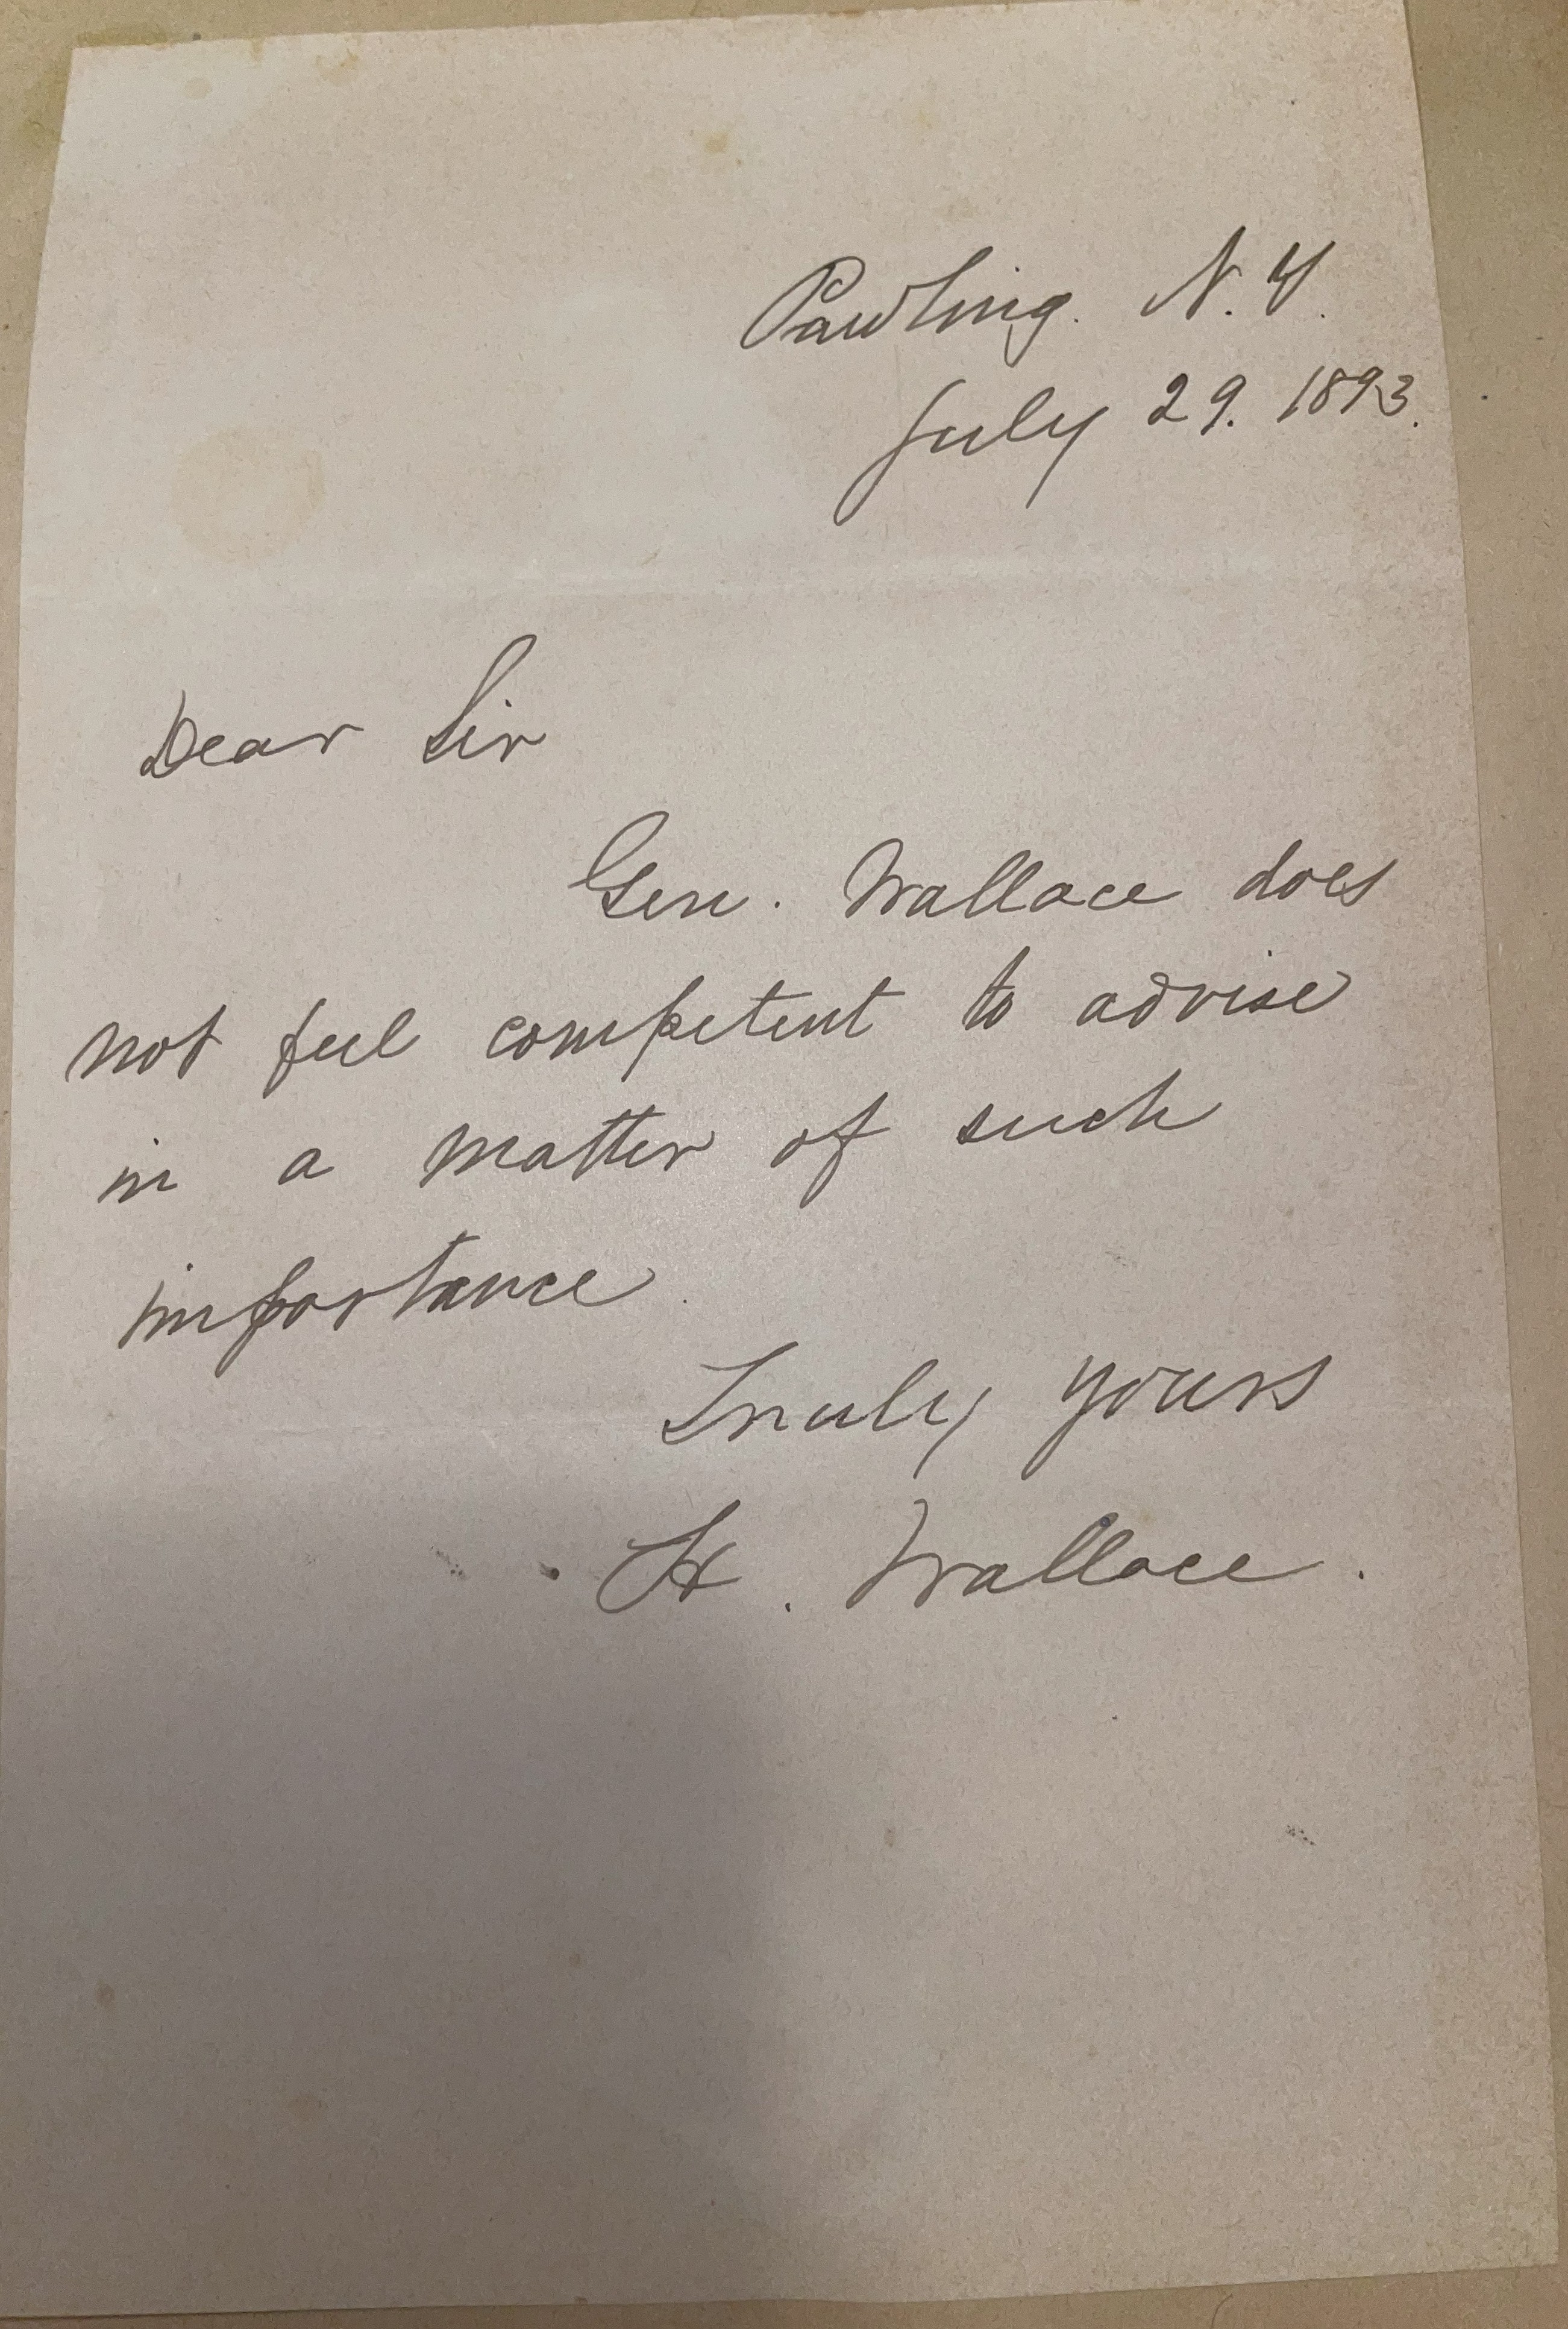 Pawling. N.Y.
July 29. 1893.
Dear Sir
Gen. Wallace does
not feel competent to advise
in a matter of such
importance.
Truly yours
H. Wallace.